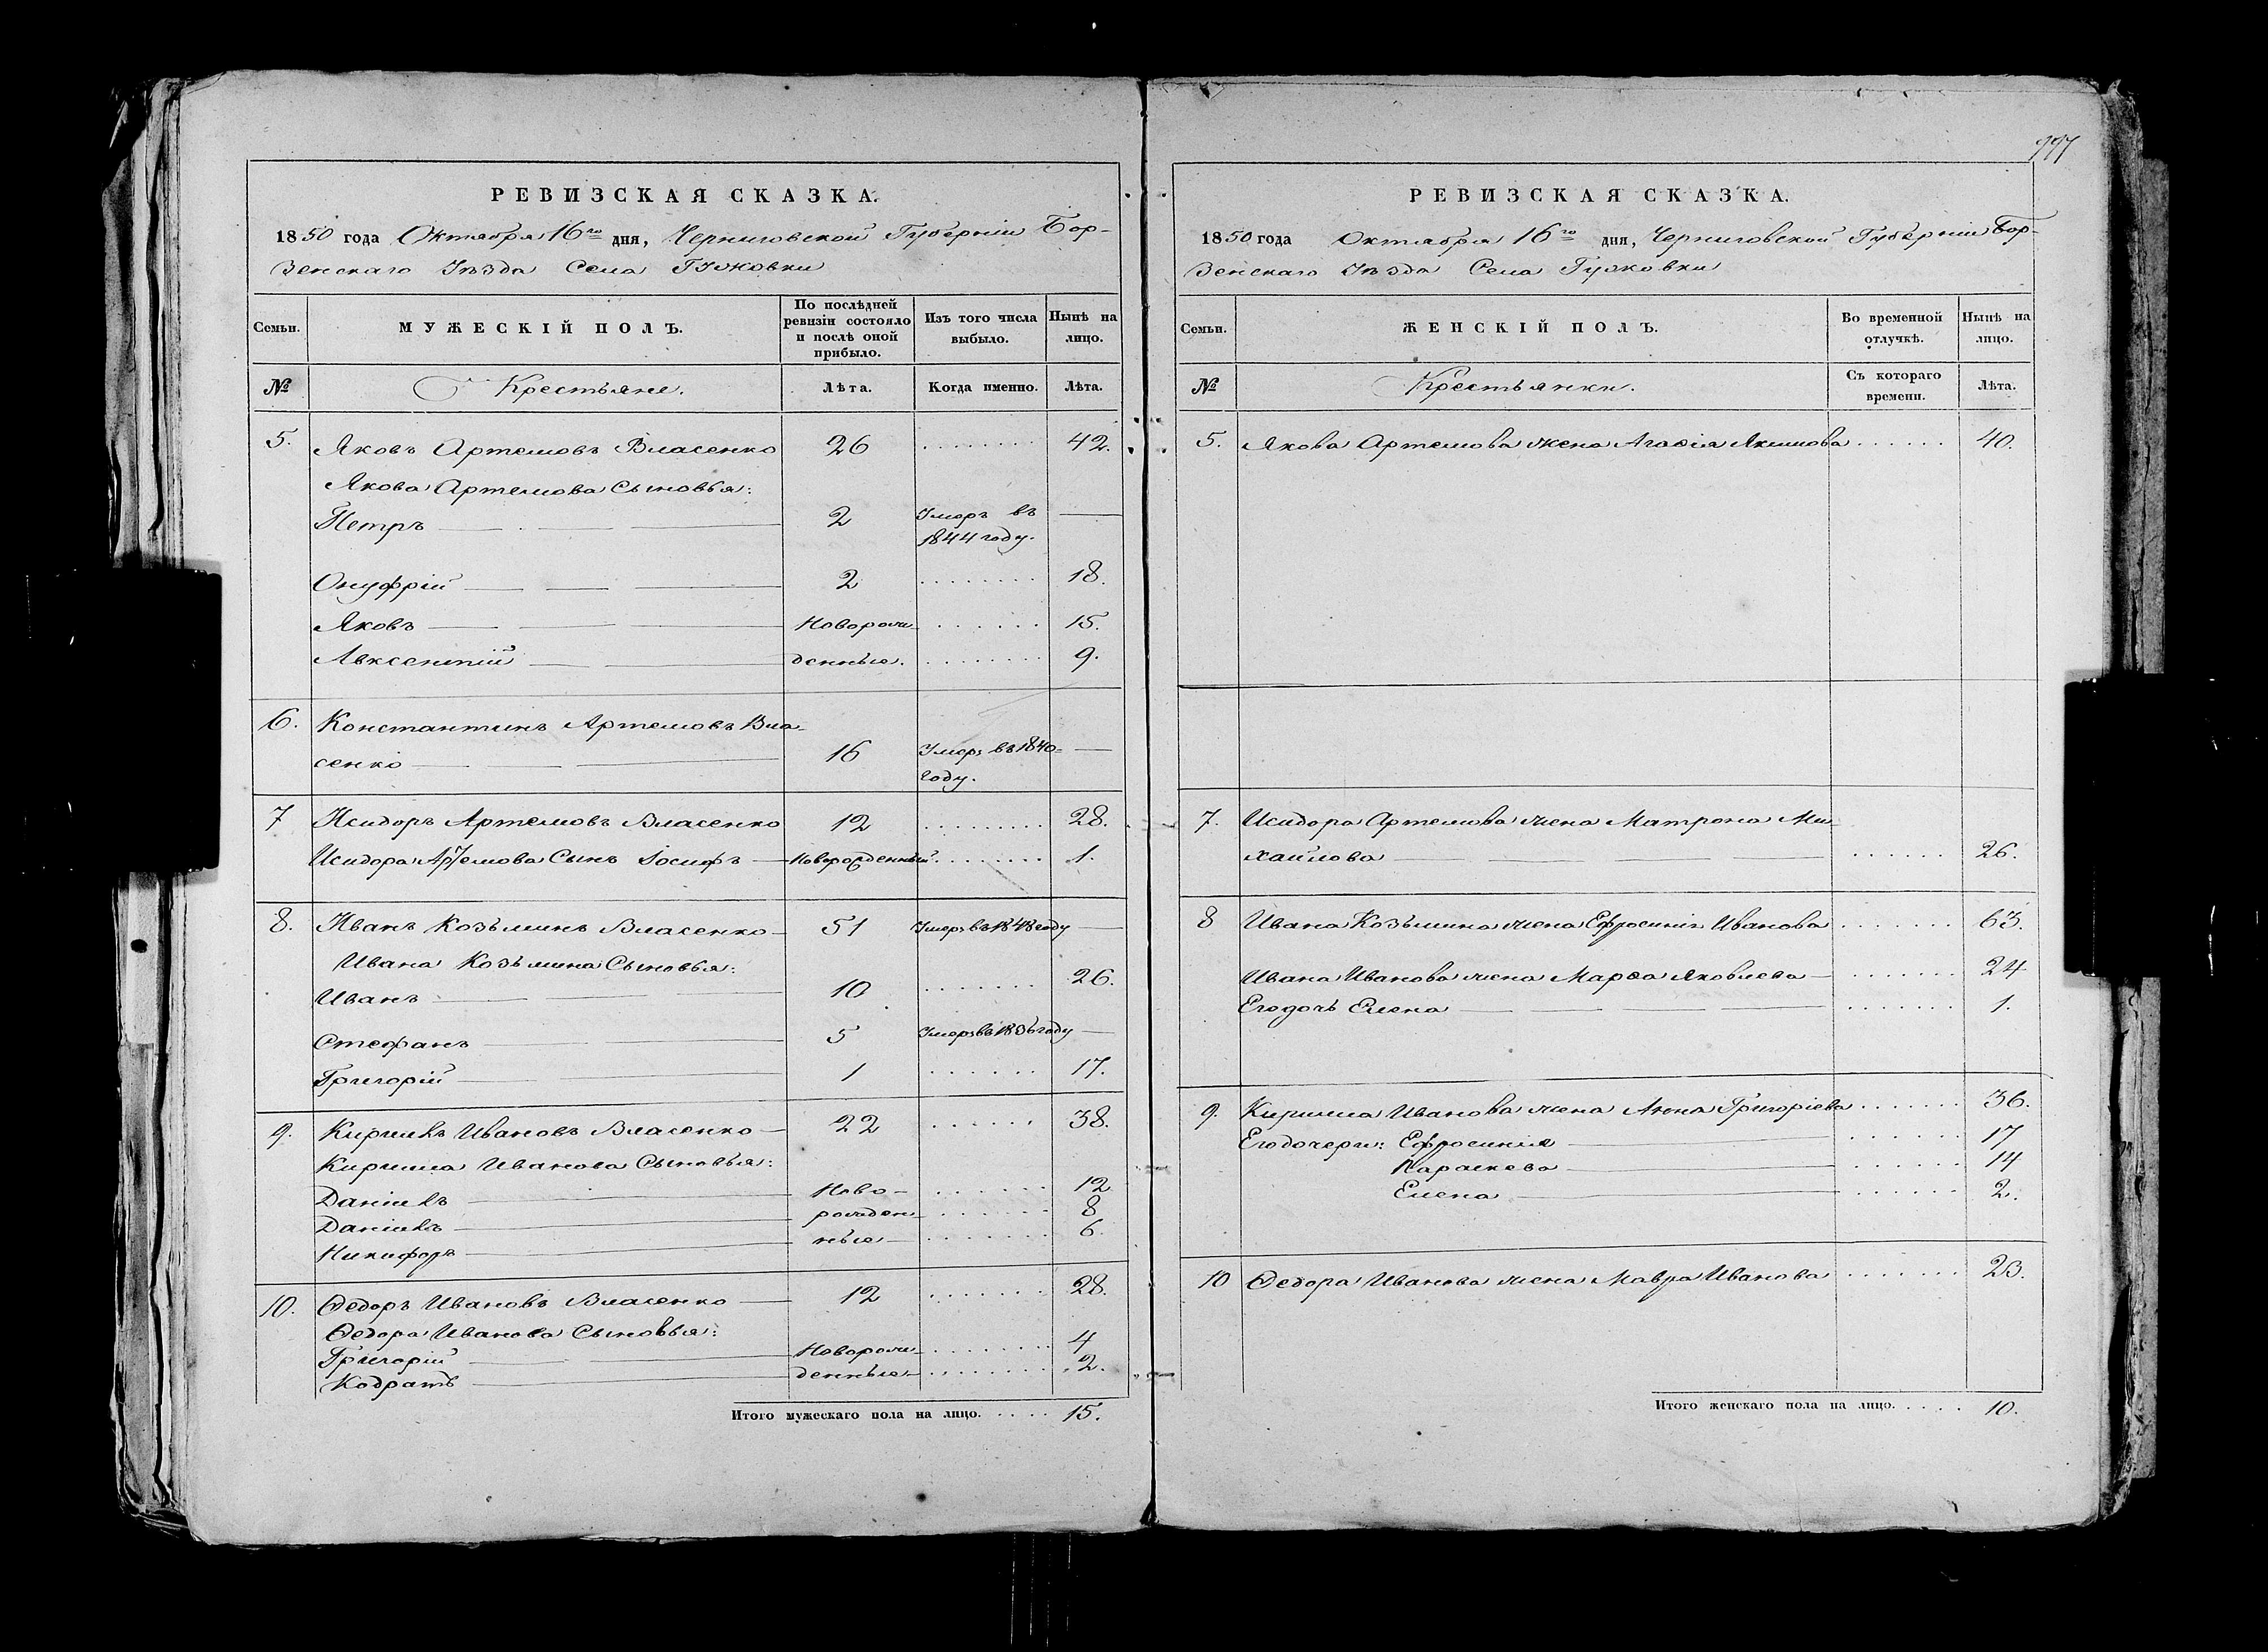 997
РЕВИЗСКАЯ СКАЗКА.
1850 года Октября 16го дня, Черниговской Губерніи Бор-
зенскаго Уѣзда Села Гужовки
Семьи. МУЖЕСКІЙ ПОЛЪ. По послѣдней ревизіи состояло и послѣ оной прибыло. Изъ того числа выбыло. Нынѣ на лицо.
№ Крестьяне. Лѣта. Когда именно. Лѣта.
5. Яковъ Артемовъ Власенко 26 42.
Якова Артемова Сыновья:
Петръ 2 Умеръ въ
1844 году.
Онуфрій 2 18.
Яковъ Новорож- 15.
Авксентій денные. 9.
6. Константинъ Артемовъ Вла-
сенко 16 Умеръ въ 1840
году.
7 Исидоръ Артемовъ Власенко 12 28.
Исидора Артемова Сынъ Іосифъ Новорожденный 1.
8. Иванъ Козьминъ Власенко 51 Умеръ въ 1848 году
Ивана Козьмина Сыновья:
Иванъ 10 26.
Стефанъ 5 Умеръ въ 1836 году
Григорій 1 17.
9. Кирилъ Ивановъ Власенко 22 38.
Кирила Иванова Сыновья:
Даніилъ Ново- 12
Даніилъ рожден- 8
Никифоръ ные 6.
10. Ѳедоръ Ивановъ Власенко 12 28.
Ѳедора Иванова Сыновья:
Григорій Новорож- 4
Кодратъ денные 2.
Итого мужескаго пола на лицо. 15.
РЕВИЗСКАЯ СКАЗКА.
1850 года Октября 16го дня, Черниговской Губерніи Бор-
зенскаго Уѣзда Села Гужовки
Семьи. ЖЕНСКІЙ ПОЛЪ. Во временной отлучкѣ. Нынѣ на лицо.
№ Крестьянки. Съ котораго времени. Лѣта.
5. Якова Артемова жена Агафія Якимова 40.
7. Исидора Артемова жена Матрона Ми-
хайлова 26.
8 Ивана Козьмина жена Ефросинія Иванова 63.
Ивана Иванова жена Марѳа Яковлева 24
Его дочь Елена 1.
9. Кирила Иванова жена Анна Григоріева 36.
Его дочери: Ефросинія 17
Параскева 14
Елена 2.
10 Ѳедора Иванова жена Мавра Иванова 23.
Итого женскаго пола на лицо. 10.